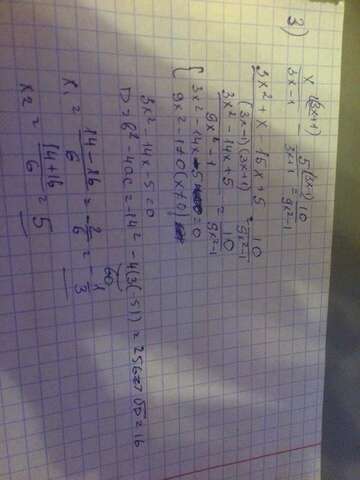 3)
x(3x+1)/(3x-1) - 5(3x-1)/(3x+1) = 10/(9x²-1)
(3x² + x - 15x + 5)/((3x-1)(3x+1)) = 10/(9x²-1)
(3x² - 14x + 5)/(9x² - 1) = 10/(9x²-1)
{ 3x² - 14x - 5 = 0
9x² - 1 ≠ 0 (x ≠ 0)
3x² 14x - 5 = 0
D = b² - 4ac = 14² - 4(3·(-5)) = 256 => √D = 16
60
x₁ = (14 - 16)/6 = -2/6 = -1/3
x₂ = (14 + 16)/6 = 5